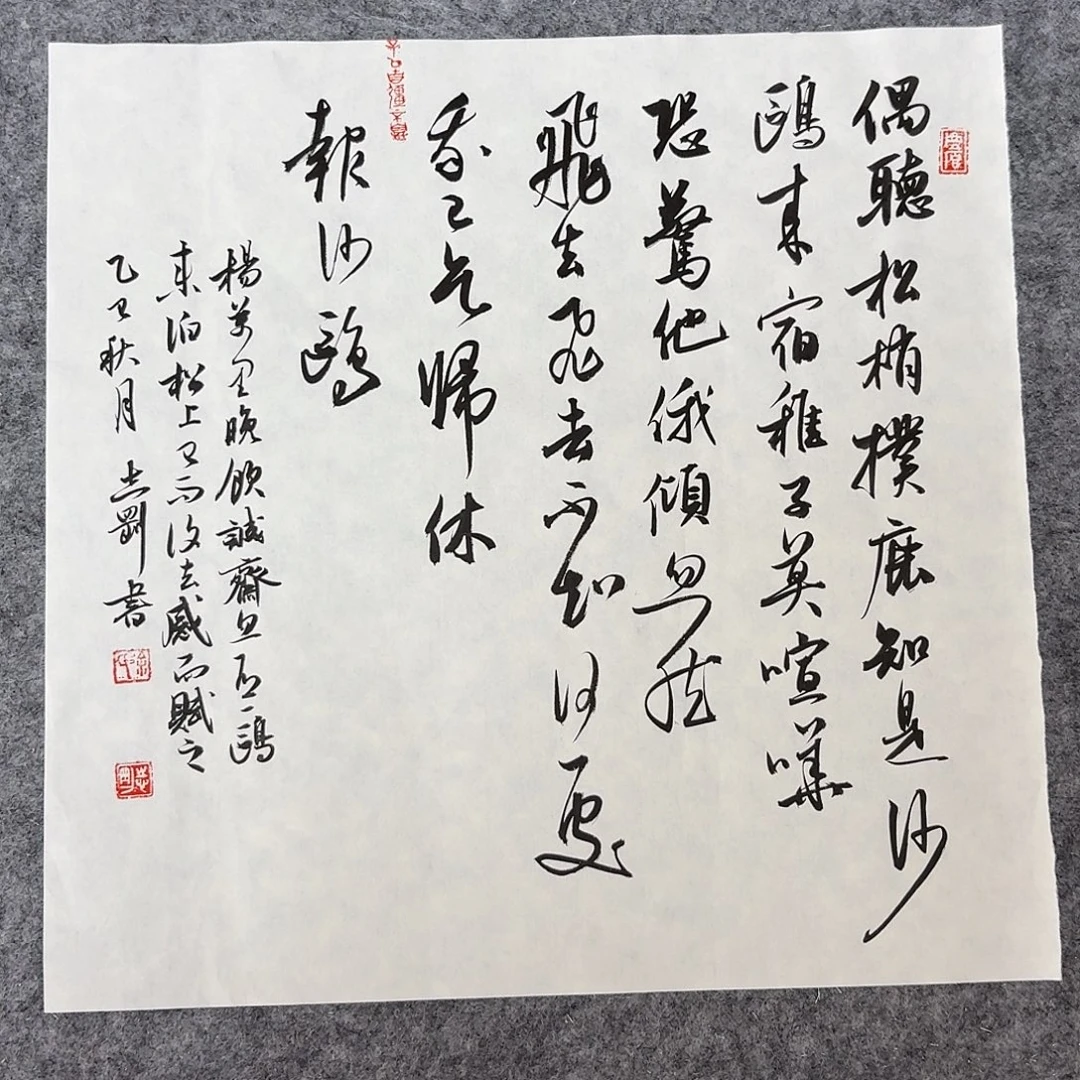 偶聽松梢撲鹿知是沙
鷗來宿稚子莫喧嘩
恐驚他俄傾忽然
飛去飛去不知何處
我已乞歸休
報沙鷗
楊萬里晚飲誠齋忽有一鷗
來泊松上已而復去感而賦之
乙巳秋月志剛書